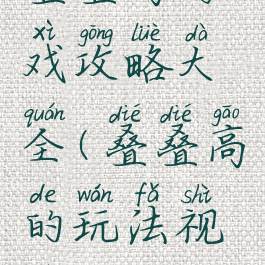 xì gōng lüè dà
戏攻略大
quán dié dié gāo
全(叠叠高
de wán fǎ shì
的玩法视